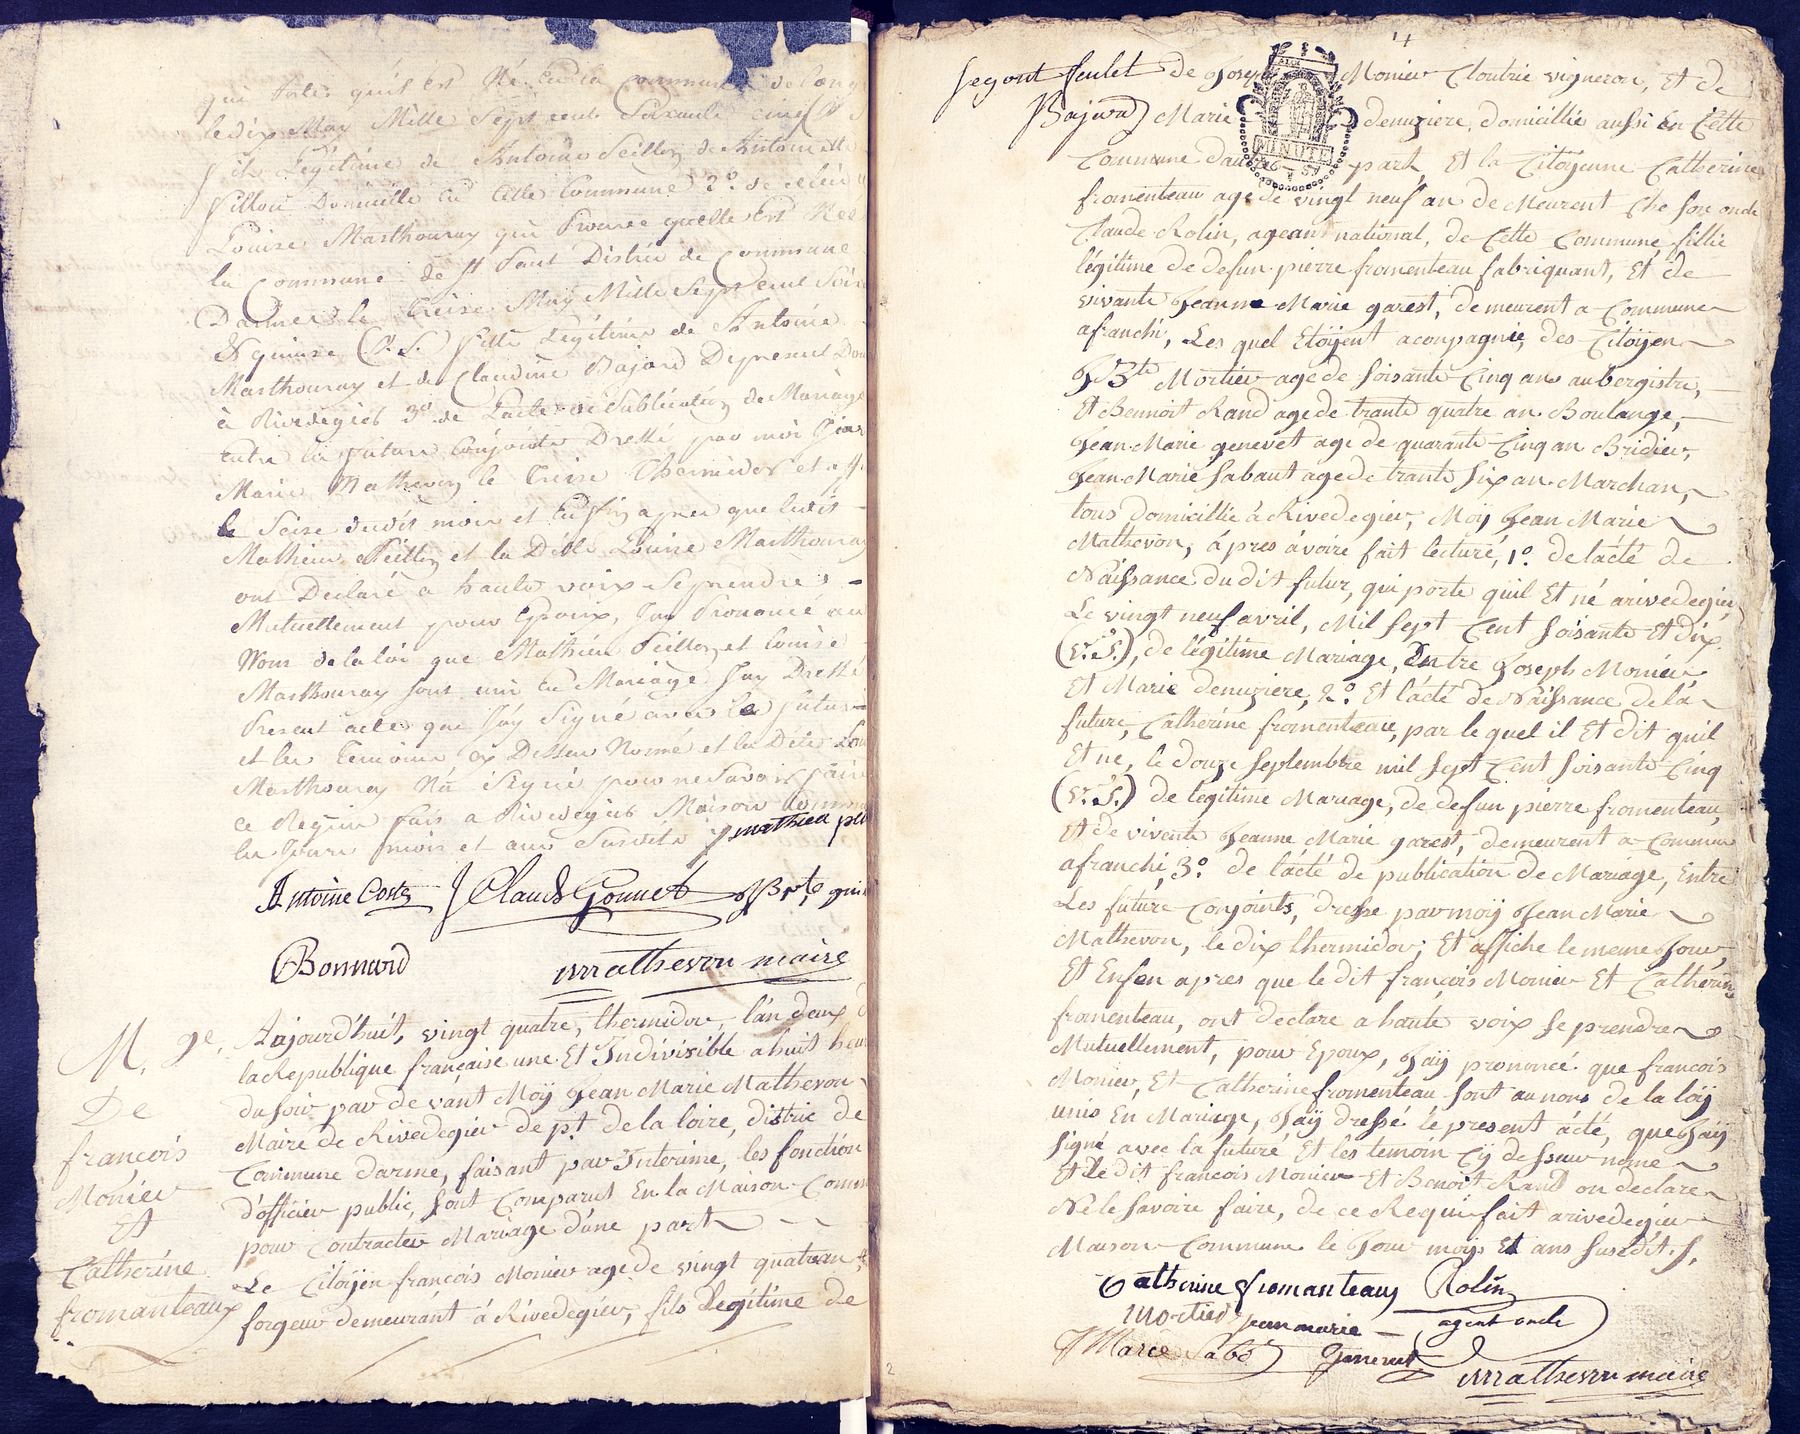 qui porte qu'il est Né en la commune de Long
le dix May Mille Sept cent Soixante cinq
fils légitime de Antoine Peillon & de Antoinette
Pitiou Domicillé en cette Commune 2º de celui
Louise Marthouray qui Prouve quelle est Née
la Commune de St Paul District de Commune
Darmes le Treise May Mille Sept cent Soix
Et quinse (V.S.) fille Légitime de Antoine
Marthouray et de Claudine Bajard Depresent Dom
à Rivedegier 3º de l'acte de Publication de Mariage
Entre les futurs Conjoints Dressé par moi Jean
Marie Mathevon le Treise Thermidor et aff
le Seise dudit mois et Enfin apres que ledit
Mathieu Peillon et la Dite Louise Marthouray
ont Declaré a haute voix Seprendre
Mutuellement pour Epoux, Jay Prononcé au
Nom de la loi que Mathieu Peillon et Louise
Marthouray sont unis En Mariage Jay Dressé
Present acte que J'ay Signé avec le futur
et les temoins cy Dessus Nommé et la Dite Lou
Marthouray Na Signé pour ne Savoir faire
ce Requis fait a Rivedegier Maison Commu
les Jours mois et ans Susdits mathieu pei
Antoine Coste J Claude Gonnet JBpte gui
Bonnard mathevon maire
M. ge.
De
françois
Monier
Et
Catherine
fromanteaux
Aujourd'huit, vingt quatre, thermidor, l'an deux d
la Republique française une Et Indivisible a huit heur
du soir par de vánt Moÿ Jean Marie Mathevon
Maire de Rivedegier dept. de la loire, distric de
Commune darme, faisant par Interime, les fonction
d'officier public, sont Comparut En la Maison Comm
pour Contracter Mariage d'une part
Le Citoÿen françois Monier age de vingt quatre an
forgeur demeurant á Rivedegier, fils Legitime de
14
segont feulet de Joseph Monier Cloutrie vigneron, Et de
Bajard Marie denuziere, domicillié aussi En Cette
MINUTE
Commune dautre part, Et la Citoÿenne Catherine
fromenteau age de vingt neuf an de Meurent Che son oncle
Claude Rolin, agean national, de Cette Commune fillie
légitime de defun pierre fromenteau fabriquant, Et de
vivante Jeanne Marie garest, demeurent a Commune
afranchi, Les quel Etoÿent aconpagnié, des Citoÿen
JBte Mortier age de soisante Cinq ans aubergistre,
Et Bennoit Rand age de trante quatre an Boulange,
Jean Marie genevet age de quarante Cinq an Bridier,
Jean Marie sabaut age de trante six an Marchan,
tous domicillié à Rivedegier, Moÿ Jean Marie
Mathevon, ápres ávoire fait lecturé, 1º. de lácté de
Naissance du dit futur, qui porte quil Et né arivedegier,
Le vingt neuf avril, Mil sept Cent soisante Et dix
(v.s.), de légitime Mariage, Entre Joseph Monier
Et Marie denuziere, 2º. Et lácté de Naissance de lá
future, Catherine fromenteau, par le quel il Et dit quil
Et ne, le douze septembre mil sept Cent soisante Cinq
(v.s.) de legitime Mariage, de defun pierre fromenteau,
Et de vivente Jeanne Marie garest, demeurent a Commun
afranchi, 3º. de lácté de publication de Máriage, Entre
Les future Conjoints, dresse par moÿ Jean Marie
Mathevon, le dix thermidor; Et affiche le meme Jour,
Et Enfen apres que le dit françois Monier Et Catherine
fromenteau, ont declare a haute voix se prendre
Mutuellement, pour Epoux, Jaÿ prononcé que francois
Monier, Et Catherine fromenteau sont au nom de la loÿ
unis En Mariage, Jaÿ dressé lé present ácté, que Jaÿ
signé avec la futuré Et les temoin Cÿ dessus nomé
Et le dit francois Monier Et Benoit Rand on declare
Ne le savoire faire, de ce Requi fait arivedegier
Maison Commune le Jour moÿs Et ans susdit. J.
Catherine fromanteaux Rolin
mortier jean marie agent oncle
JMarie Sabo genevet
mathevon maire
2